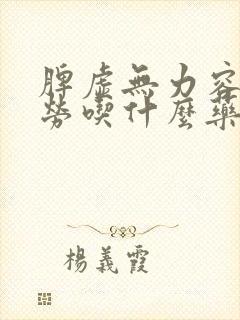 脾虛無力容
勞喫什麼藥
楊義霞